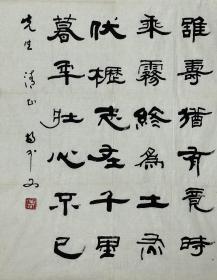 雖壽猶有竟時
乘霧終為土灰
伏櫪志在千里
暮年壯心不已
先生 清正